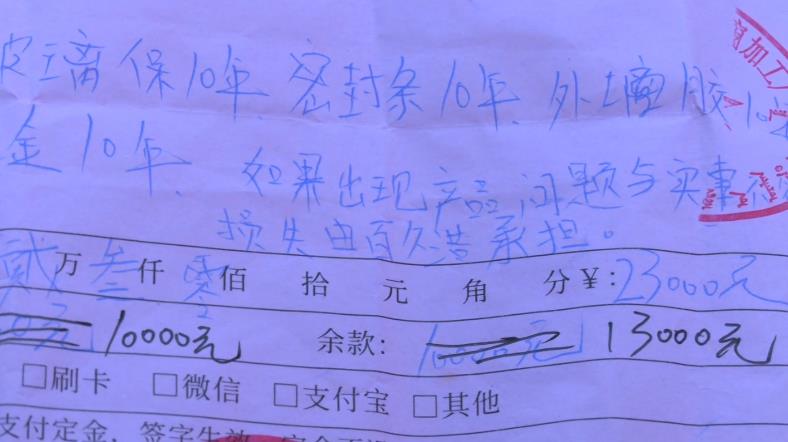 玻璃保10年、密封条10年、外墙胶10年
金10年、如果出现产品问题与实事不
损失由百久浩承担。
贰万叁仟零佰拾元角分¥:23000元
10000元 余款: 13000元
□刷卡 □微信 □支付宝 □其他
支付定金，签字生效，定金不退
窗加工厂